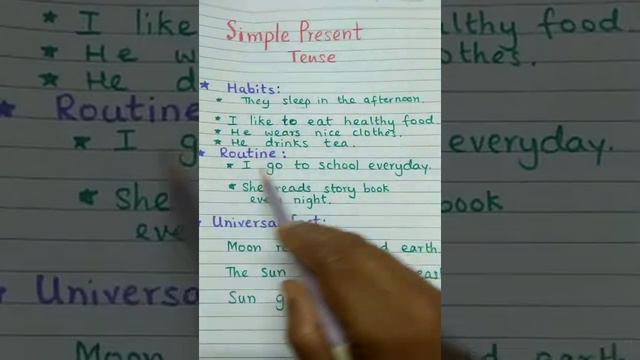 Simple Present
Tense
Habits:
They sleep in the afternoon.
I like to eat healthy food
He wears nice clothes.
He drinks tea.
Routine:
I go to school everyday.
She reads story book
night.
Moon earth
The Sun
Sun